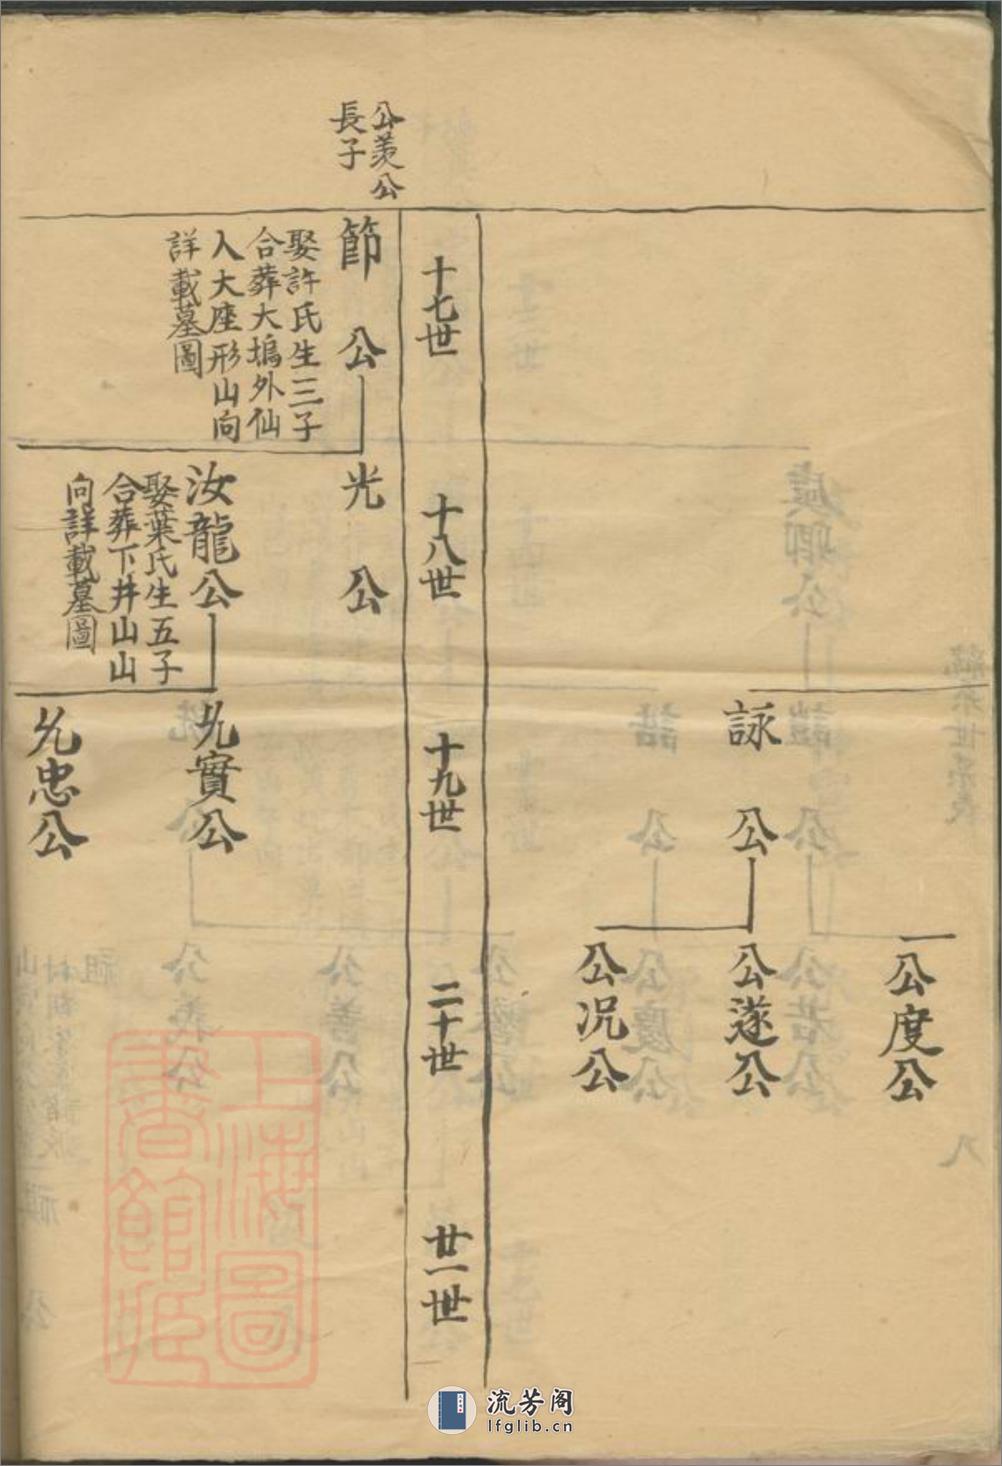 公度公
詠公
公遂公
公況公
十七世
十八世
十九世
二十世
廿一世
公羙公
長子
節公
娶許氏生三子
合葬大塢外仙
人大座形山向
詳載墓圖
光公
汝龍公
娶葉氏生五子
合葬下井山山
向詳載墓圖
允實公
允忠公
上海圖
書館藏
流芳阁
lfglib.cn